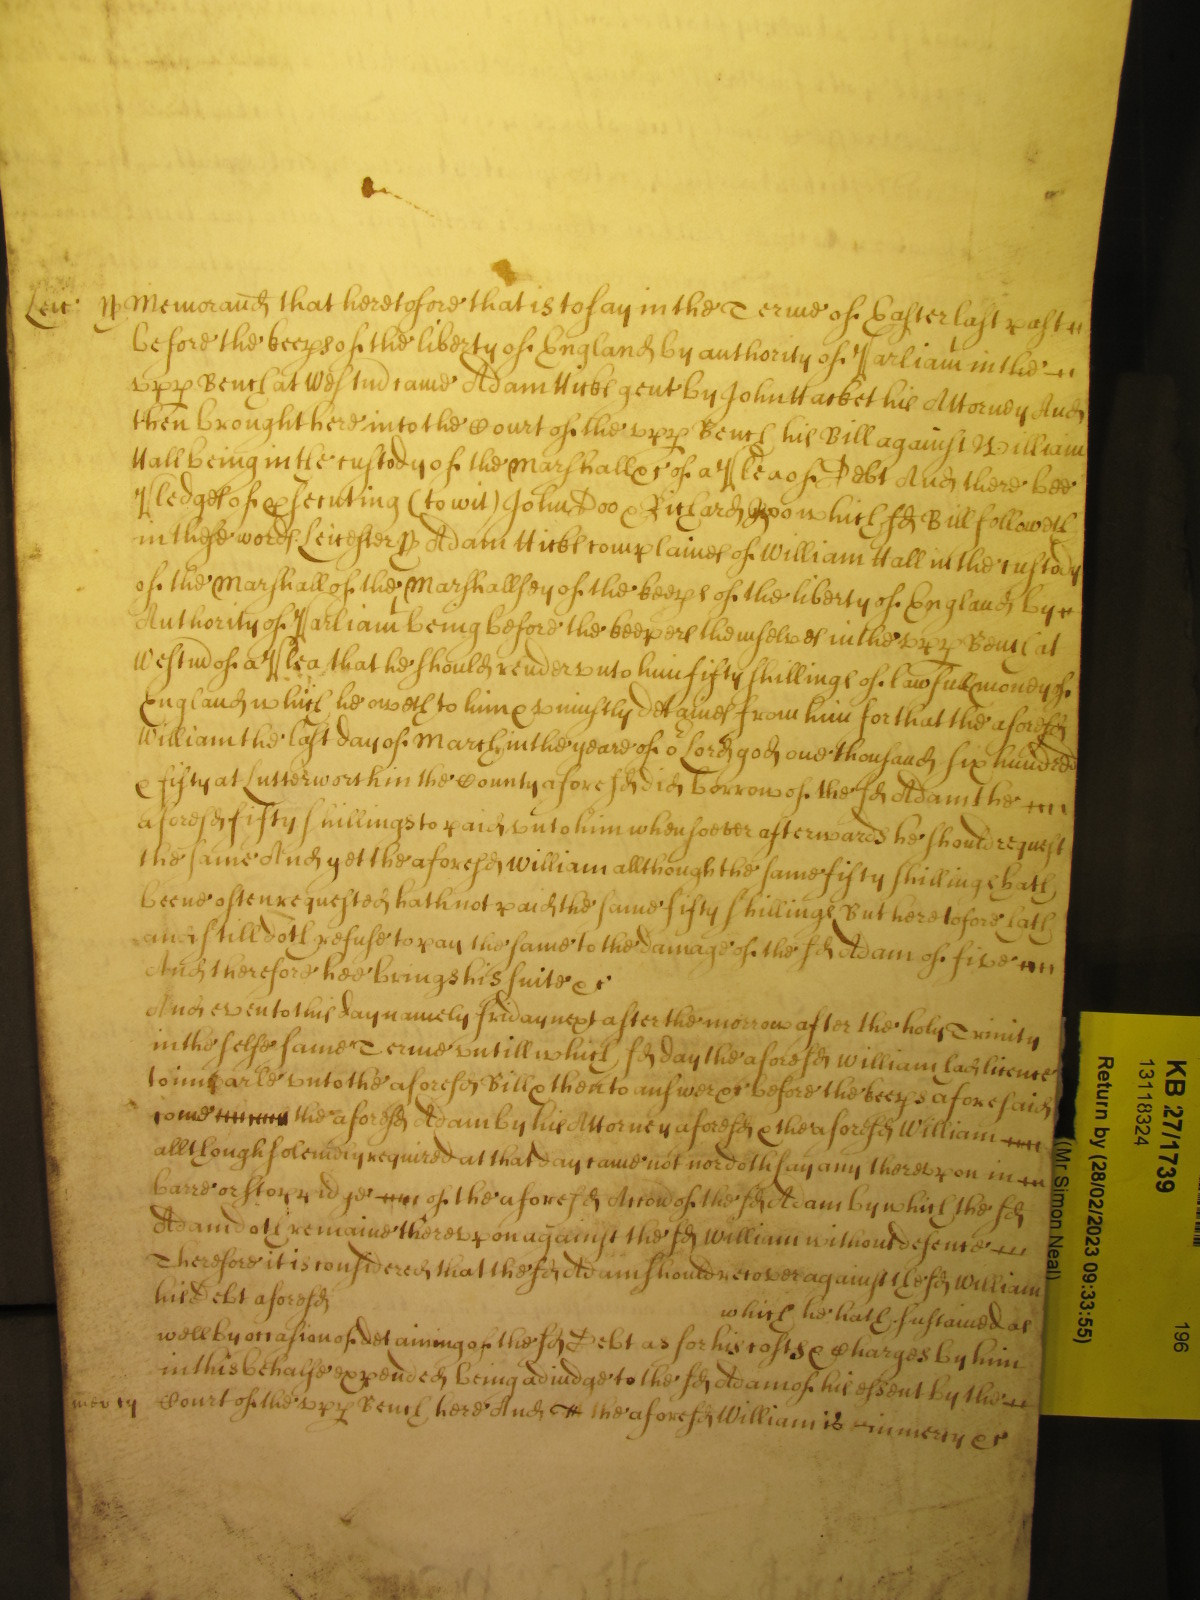 Leic ss Memorand that heretofore that is to say in the Terme of Easter last past
before the keeps of the liberty of England by authority of Parliamt in the
upp Bench at Westmd came Adam Hickl gent by John Hacket his Attorney And
then brought here into the Court of the upp Bench his Bill against William
Hall being in the custody of the Marshall &c of a Plea of Debt And there bee
Pledges of psecuting (to wit) John Doo & Richard Roo which sd Bill followeth
in these words Leicester ss Adam Hickl complaines of William Hall in the custody
of the Marshall of the Marshallsey of the keeps of the liberty of England by
Authority of Parliamt being before the keepers themselves in the upp Bench at
Westmd of a Plea that he should render unto him fifty shillings of lawfull money of
England which he oweth to him & uniustly detaines from him for that the aforesd
William the last day of March in the yeare of or Lord god one thousand six hundred
& fifty at Lutterworth in the County aforesd did borrow of the sd Adam the
aforesd fifty shillings to paid unto him whensoever afterwards he should request
the same And yet the aforesd William allthough the same fifty shillings hath
beene often requested hath not paid the same fifty shillings But heretofore hath
and still doth refuse to pay the same to the damage of the sd Adam of five
And therefore hee brings his suite &c
And even to this day namely friday next after the morrow after the holy Trinity
in the selfe same Terme untill which sd day the aforesd William had licence
to imparle unto the aforesd Bill & then to answer &c before the keeps aforesaid
come the aforesd Adam by his Attorney aforesd & the aforesd William
allthough solemnly required at that day came not nor doth say any thereupon in
barre or stoppidge of the aforesd Accon of the sd Adam by which the sd
Adam doth remaine thereupon against the sd William without defence
Therefore it is considered that the sd Adam should recover against the sd William
his Debt aforesd which he hath sustained as
well by occasion of detaining of the sd Debt as for his costs & Charges by him
in this behalfe expended being adiudge to the sd Adam of his assent by the
mercy Court of the upp Bench here And the aforesd William is in mercy &c
KB 27/1739
13118324
196
Return by (28/02/2023 09:33:55)
(Mr Simon Neal)